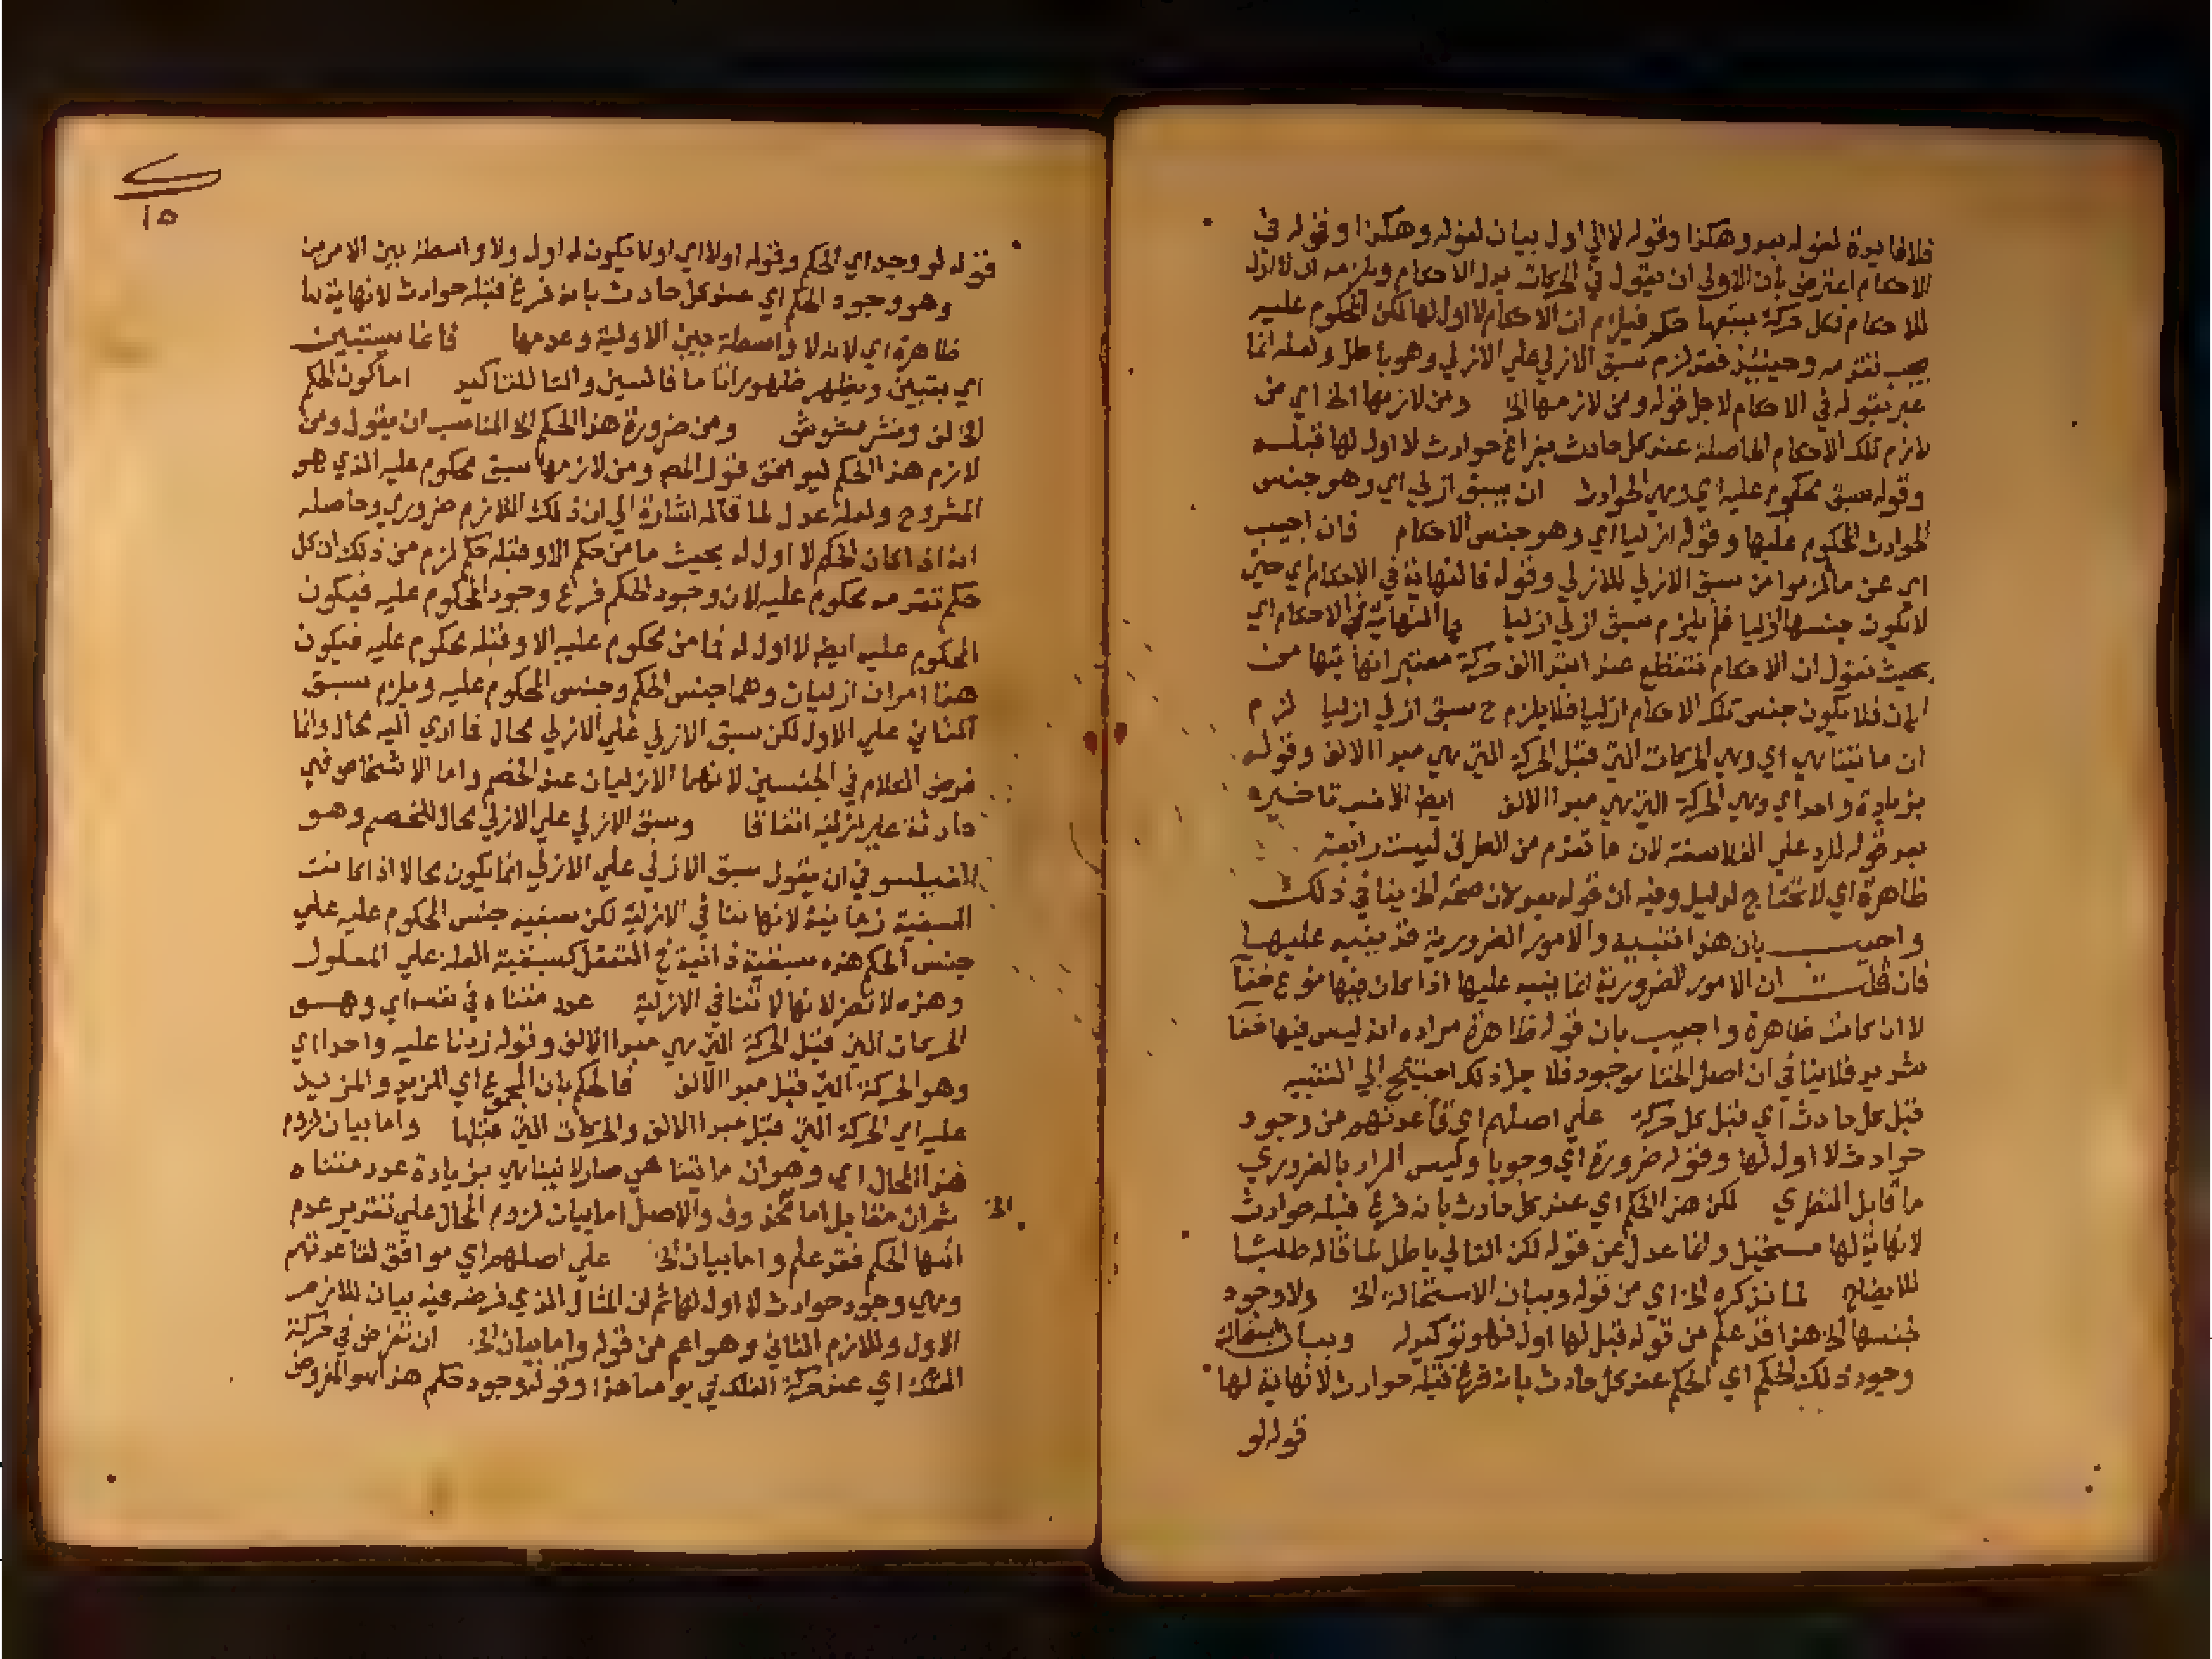 فلا فايدة لقوله بعد وهكذا وقوله لا الي اول بيان لقوله وهكذا وقوله في
الاحكام اعترض بان الاولي ان يقول في الحركات بدل الاحكام ويلزمه ان لا اول
للاحكام فكل حركة يتبعها حكم فيلزم ان الاحكام لا اول لها لكن المحكوم عليه
يجب تقدمه وحينيذ فقد لزم سبق الازلي علي الازلي وهو باطل ولعله انما
عبر بقوله في الاحكام لاجل قوله ومن لازمها الخ ومن لازمها الخ اي من
لازم تلك الاحكام الحاصلة عند كل حادث بفراغ حوادث لا اول لها قبله
وقوله سبق محكوم عليه اي وهي الحوادث ان يسبق ازلي اي وهو جنس
الحوادث المحكوم عليها وقوله ازليا اي وهو جنس الاحكام فان اجيب
اي عن ما لزموا من سبق الازلي للازلي وقوله فالنهاية في الاحكام اي حتي
لا يكون جنسها ازليا فلم يلزم سبق ازلي ازليا بالنهاية في الاحكام اي
بحيث نقول ان الاحكام تنقطع عند ابتدا الف حركة معتبر انهايتها من
الان فلا يكون جنس تلك الاحكام ازليا فلا يلزم ح سبق ازلي ازليا لزم
ان ما يتناهي اي وهي الحركات التي قبل الحركة التي هي مبدا الالف وقوله
بزيادة واحد اي وهي الحركة التي هي مبدا الالف ايضا الانسب تاخيره
بعد قوله للرد علي الفلاسفة لان ما تقدم من الطرق ليست رابعة
ظاهرة اي لا تحتاج لدليل وفيه ان قوله بعد لان صحة الخ ينافي ذلك
واجيب بان هذا تنبيه والامور الضرورية قد ينبه عليها
فان قلت ان الامور الضرورية انما ينبه عليها اذا كان فيها نوع خفا
لا ان كانت ظاهرة واجيب بان قوله ظاهرة مراده انه ليس فيها خفا
شديد فلا ينافي ان اصل الخفا موجود فلاجل ذلك احتيج الي التنبيه
قبل كل حادث اي قبل كل حركة علي اصلهم اي قاعدتهم من وجود
حوادث لا اول لها وقوله ضرورة اي وجوبا وليس المراد بالضروري
ما قابل النظري لكن هذا الحكم اي عند كل حادث بانه فرغ قبله حوادث
لا نهاية لها مستحيل وانما عدل عن قوله لكن التالي باطل لما قاله طلبا
للايضاح لما نذكره الخ اي من قوله وبيان الاستحالة الخ ولا وجود
لجنسها الخ هذا قد علم من قوله قبل لها اول فهو توكيد له وبيان استحالة
وجود ذلك الحكم اي الحكم عند كل حادث بانه فرغ قبله حوادث لا نهاية لها
قوله لو
١٥
قوله لو وجد اي الحكم وقوله اولا اي اولا يكون له اول ولا واسطة بين الامرين
وهو وجود الحكم اي عند كل حادث بانه فرغ قبله حوادث لا نهاية لها
ظاهرة اي لانه لا واسطة بين الاولية وعدمها فانما يستبين
اي يتبين ويظهر ظهورا تاما فالسين والتا للتاكيد اما كون الحكم
الخ لف ونشر مشوش ومن ضرورة هذا الحكم الخ المناسب ان يقول ومن
لازم هذا الحكم ليوافق قول المص ومن لازمها سبق محكوم عليه الذي هو
المشروح ولعله عدل لما قاله اشارة الي ان ذلك اللازم ضروري وحاصله
انه اذا كان الحكم لا اول له بحيث ما من حكم الا وقبله حكم لزم من ذلك ان كل
حكم تقدمه محكوم عليه لان وجود الحكم فرع وجود المحكوم عليه فيكون
المحكوم عليه ايضا لا اول له فما من محكوم عليه الا وقبله محكوم عليه فيكون
هنا امران ازليان وهما جنس الحكم وجنس المحكوم عليه ويلزم سبق
الثاني علي الاول لكن سبق الازلي علي الازلي محال فما ادي اليه محال وانما
فرض الكلام في الجنسين لانهما الازليان عند الخصم واما الاشخاص فهي
حادثة غير ازلية اتفاقا وسبق الازلي علي الازلي محال للخصم وهو
الفيلسوفي ان يقول سبق الازلي علي الازلي انما يكون محالا اذا كانت
السبقية زمانية لانها تنافي الازلية لكن سبقية جنس المحكوم عليه علي
جنس الحكم هذه سبقية ذاتية في التعقل كسبقية العلة علي المعلول
وهذه لا تضر لانها لا تنافي الازلية عدد متناه في نفسه اي وهو
الحركات التي قبل الحركة التي هي مبدا الالف وقوله زدنا عليه واحدا اي
وهو الحركة التي قبل مبدا الالف فالحكم بان المجموع اي المزيد والمزيد
عليه اي الحركة التي قبل مبدا الالف والحركات التي قبلها واما بيان لزوم
هذا المحال اي وهو ان ما يتناهي صار لا يتناهي بزيادة عدد متناه
ثم ان مقابل اما محذوف والاصل اما بيان لزوم المحال علي تقدير عدم
الخ
انتها الحكم فقد علم واما بيان الخ علي اصلهم اي موافق لقاعدتهم
وهي وجود حوادث لا اول لها ثم ان المثال الذي فرضه فيه بيان للازم
الاول وللازم الثاني وهو اعم من قوله واما بيان الخ ان نفرض في حركة
الفلك اي عند حركة الفلك في يومنا هذا وقوله وجود حكم هذا هو المفروض